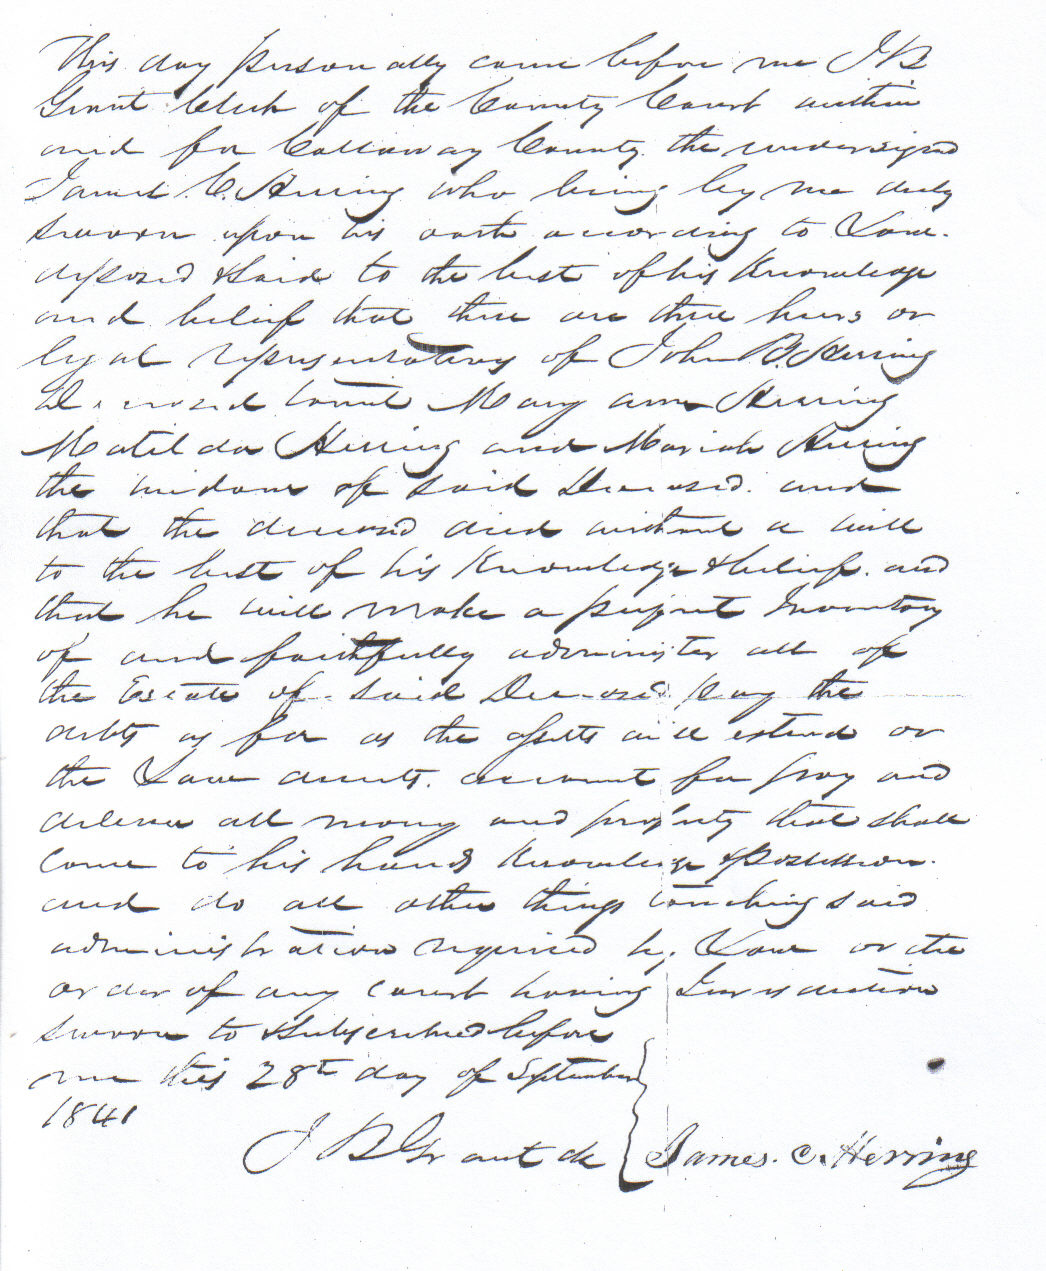 This day personally came before me J B
Grant Clerk of the County Court within
and for Callaway County the undersigned
James C. Herring who being by me duly
sworn upon his oath according to Law.
deposed & said to the best of his Knowledge
and belief that there are three heirs or
legal representatives of John B. Herring
deceased towit Mary ann Herring
Matilda Herring and Mariah Herring
the widow of said Deceased. and
that the deceased died without a will
to the best of his Knowledge & belief. and
that he will make a perfect Inventory
of and faithfully administer all of
the Estate of said Deceased pay the
debts as far as the assets will extend or
the Law directs. account for pay and
deliver all money and property that shall
come to his hands Knowledge & Possession.
and do all other things touching said
administration required by Law or the
order of any court having Jurisdiction
sworn to & subscribed before
me this 28th day of September
1841
J B Grant clk James. C. Herring